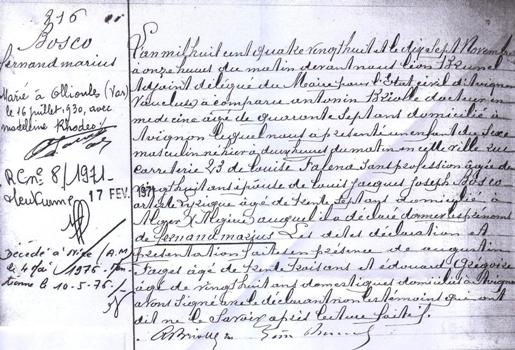 216
Bosco
fernand marius
Marié à Ollioules (Var)
le 16 juillet 930, avec
madeleine Rhodes
RC nº 8/1971
17 FEV. 1971
Décédé à Nice (A.M.)
le 4 1976
10-5-76
L'an mil huit cent quatre vingt huit et le dix sept Novembre
à onze heures du matin devant nous Léon Brunel
Adjoint délégué du Maire pour l'état civil d'Avignon
Vaucluse à comparu antonin docteur en
médecine agé de quarante sept ans domicilié à
Avignon lequel nous a présenté un enfant du sexe
masculin né hier à deux heures du matin en cette ville rue
carreterie 23 de Louise sans profession agée de
vingt huit ans épouse de Louis Jacques Joseph Bosco
artiste lyrique agé de trente sept ans domicilié à
Alger Algérie auquel il a déclaré donner les prénoms
de fernand marius Les dites déclaration et
présentation faites en présence de augustin
agé de trente trois ans et édouard Grégoire
âgé de vingt huit ans domestiques domiciliés à Avignon
avons signé avec le déclarant non les témoins qui ont
dit ne le savoir après lecture faite.